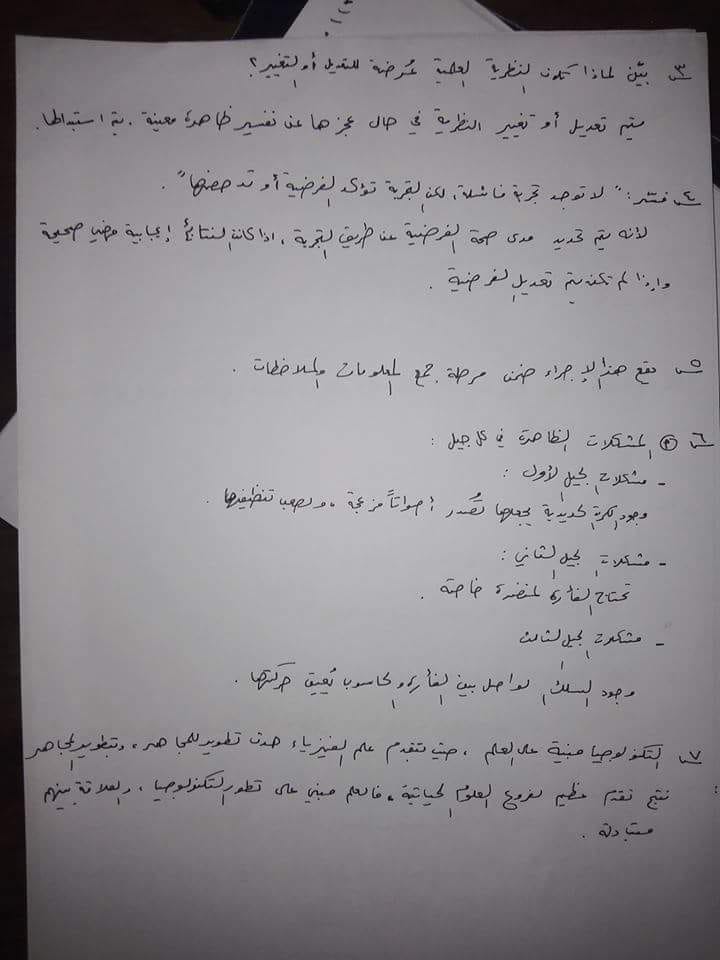 س٣ بيّن لماذا تكون النظرية العلمية عُرضة للتعديل أو التغيير؟
يتم تعديل أو تغيير النظرية في حال عجزها عن تفسير ظاهرة معينة. يتم استبدالها.
س٤ فسّر: "لا توجد تجربة فاشلة، لكن التجربة تؤكد الفرضية أو تدحضها".
لأنه يتم تحديد مدى صحة الفرضية عن طريق التجربة، اذا كانت النتائج إيجابية فهي صحيحة
وإذا لم تكن يتم تعديل الفرضية.
س٥ يقع هذا الإجراء ضمن مرحلة جمع المعلومات والملاحظات.
س٦ المشكلات الظاهرة في كل جيل:
- مشكلات الجيل الأول:
وجود الكرة الحديدية يجعلها تُصدر أصواتاً مزعجة، ويصعب تنظيفها.
- مشكلات الجيل الثاني:
تحتاج الفأرة لمنضدة خاصة.
- مشكلات الجيل الثالث
وجود السلك الواصل بين الفأرة والحاسوب يُعيق حركتها.
س٧ التكنولوجيا مبنية على العلم، حيث بتقدم علم الفيزياء حدث تطوير للمجاهر، وبتطوير المجاهر
نتج تقدم عظيم لفروع العلوم الحياتية، فالعلم مبني على تطور التكنولوجيا، والعلاقة بينهم
متبادلة.